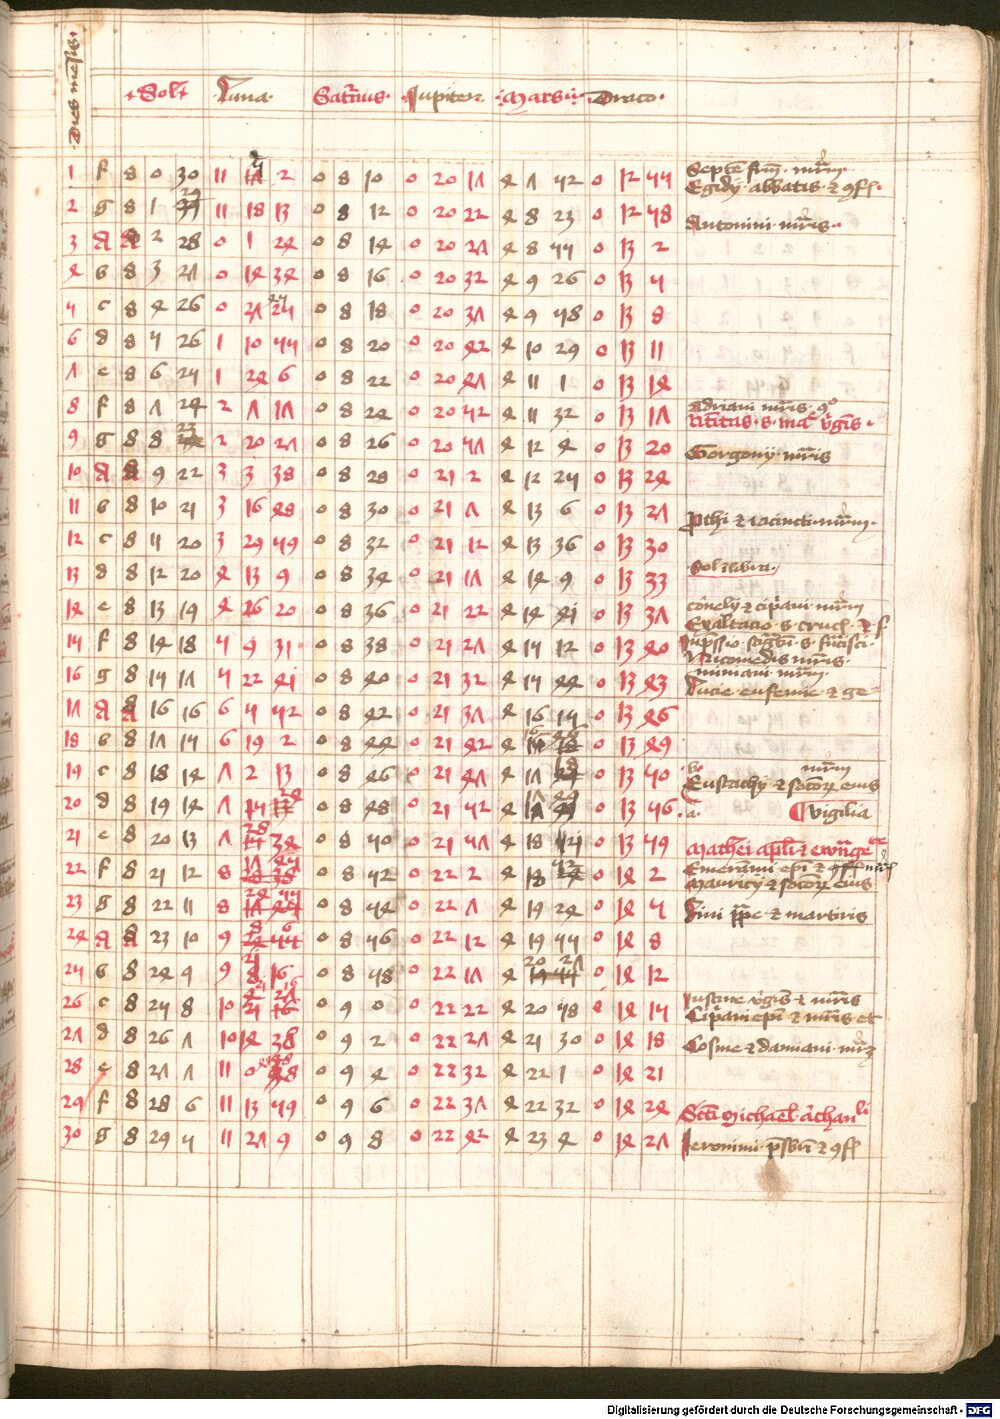 Dies mensis
Sol Luna Saturnus Jupiter Mars Draco
1 f 8 0 30 11 2 0 8 10 0 20 17 4 7 52 0 12 55
2 g 8 1 29 11 18 13 0 8 12 0 20 22 4 8 23 0 12 58
3 A 8 2 28 0 1 24 0 8 14 0 20 27 4 8 55 0 13 2
4 b 8 3 27 0 14 34 0 8 16 0 20 32 4 9 26 0 13 5
5 c 8 4 26 0 27 0 8 18 0 20 37 4 9 58 0 13 8
6 d 8 5 26 1 10 55 0 8 20 0 20 42 4 10 29 0 13 11
7 e 8 6 25 1 24 6 0 8 22 0 20 47 4 11 1 0 13 14
8 f 8 7 24 2 7 17 0 8 24 0 20 52 4 11 32 0 13 17
9 g 8 8 23 2 20 27 0 8 26 0 20 57 4 12 4 0 13 20
10 A 8 9 22 3 3 38 0 8 28 0 21 2 4 12 25 0 13 24
11 b 8 10 21 3 16 48 0 8 30 0 21 7 4 13 6 0 13 27
12 c 8 11 20 3 29 59 0 8 32 0 21 12 4 13 36 0 13 30
13 d 8 12 20 4 13 9 0 8 34 0 21 17 4 14 9 0 13 33
14 e 8 13 19 4 26 20 0 8 36 0 21 22 4 14 41 0 13 37
15 f 8 14 18 5 9 31 0 8 38 0 21 27 4 15 12 0 13 40
16 g 8 15 17 5 22 41 0 8 40 0 21 32 4 15 44 0 13 43
17 A 8 16 16 6 5 52 0 8 42 0 21 37 4 16 15 0 13 46
18 b 8 17 15 6 19 2 0 8 44 0 21 42 4 16 46 0 13 49
19 c 8 18 14 7 2 13 0 8 46 0 21 47 4 17 18 0 13 50
20 d 8 19 14 7 15 24 0 8 48 0 21 52 4 17 49 0 13 56
21 e 8 20 13 7 28 34 0 8 50 0 21 57 4 18 21 0 13 59
22 f 8 21 12 8 0 8 52 0 22 2 4 18 52 0 14 2
23 g 8 22 11 8 0 8 54 0 22 7 4 19 24 0 14 5
24 A 8 23 10 9 0 8 56 0 22 12 4 19 55 0 14 8
25 b 8 24 9 9 0 8 58 0 22 17 4 20 27 0 14 12
26 c 8 25 8 10 0 9 0 0 22 22 4 20 58 0 14 15
27 d 8 26 7 10 14 38 0 9 2 0 22 27 4 21 30 0 14 18
28 e 8 27 7 11 0 48 0 9 4 0 22 32 4 22 1 0 14 21
29 f 8 28 6 11 13 59 0 9 6 0 22 37 4 22 32 0 14 24
30 g 8 29 5 11 27 9 0 9 8 0 22 42 4 23 4 0 14 27
Egidy abbatis & 9ff.
Antonini mris
Adriani mris
Natiuitas s. mar virginis
Gorgony mris
Prothi & iacincti mrm
Sol
Cornely & cipriani mrm
Exaltacio s. crucis & f
Impressio s. francisci
Nicomedis mris
Lucie eufemie & ge
Eustachy & socior eius mrm
Vigilia
Mathei apli & ewangeliste
Emerammi epi & mris
Mauricy & socior eius
Lini ppe & martiris
Justine virginis & mris
Cipriani epi & mris et
Cosme & damiani mrm
Scti Michaelis archangeli
Jeronimi psbri & 9ff
Digitalisierung gefördert durch die Deutsche Forschungsgemeinschaft - DFG